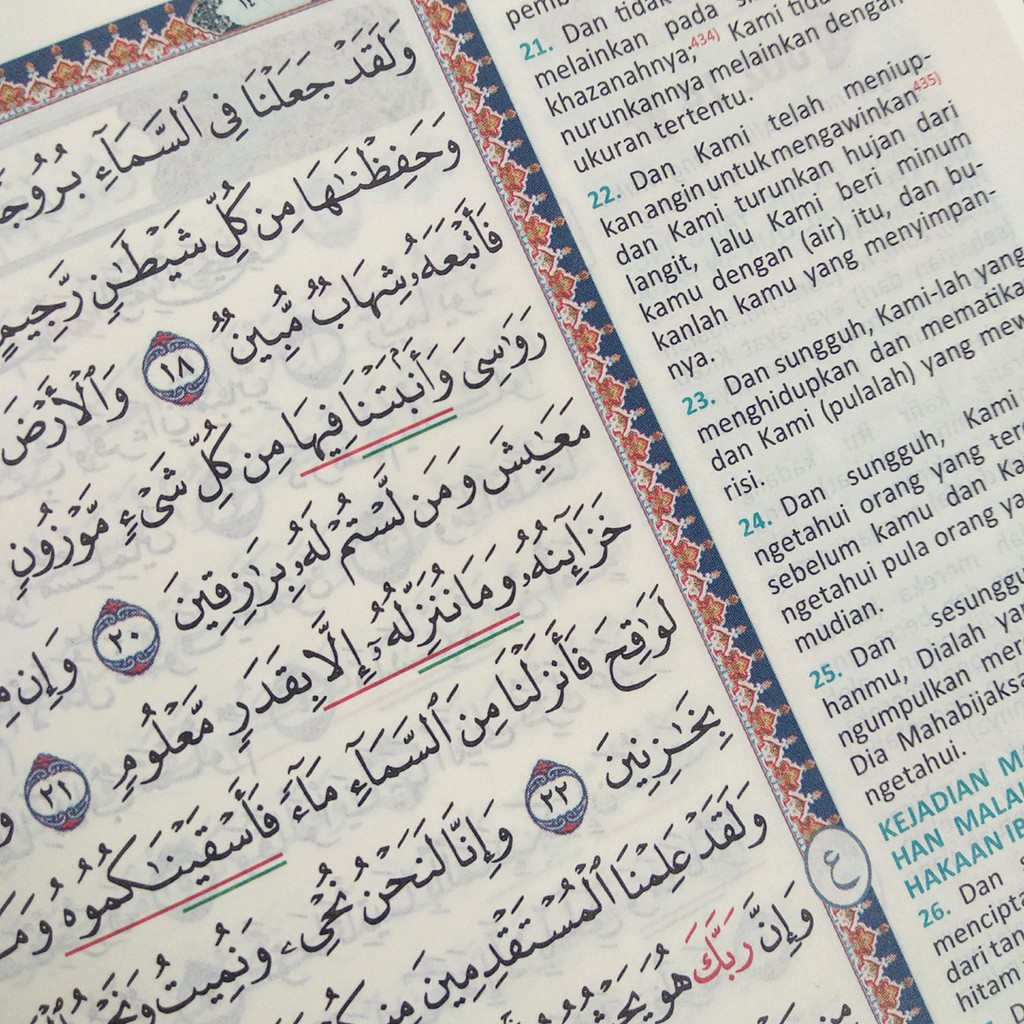 وَلَقَدْ جَعَلْنَا فِى ٱلسَّمَآءِ
وَحَفِظْنَٰهَا مِن كُلِّ شَيْطَٰنٍ رَّجِيمٍ
فَأَتْبَعَهُۥ شِهَابٌ مُّبِينٌ ١٨ وَٱلْأَرْضَ
رَوَٰسِىَ وَأَنۢبَتْنَا فِيهَا مِن كُلِّ شَىْءٍ مَّوْزُونٍ
مَعَٰيِشَ وَمَن لَّسْتُمْ لَهُۥ بِرَٰزِقِينَ ٢٠ وَإِن
خَزَآئِنُهُۥ وَمَا نُنَزِّلُهُۥٓ إِلَّا بِقَدَرٍ مَّعْلُومٍ ٢١
لَوَٰقِحَ فَأَنزَلْنَا مِنَ ٱلسَّمَآءِ مَآءً فَأَسْقَيْنَٰكُمُوهُ
بِخَٰزِنِينَ ٢٢ وَإِنَّا لَنَحْنُ نُحْىِۦ وَنُمِيتُ
وَلَقَدْ عَلِمْنَا ٱلْمُسْتَقْدِمِينَ
وَإِنَّ رَبَّكَ هُوَ
ع
21. Dan tidak
melainkan pada
khazanahnya;434) Kami
nurunkannya melainkan dengan
ukuran tertentu.
22. Dan Kami telah meniup-
kan angin untuk mengawinkan435)
dan Kami turunkan hujan dari
langit, lalu Kami beri minum
kamu dengan (air) itu, dan bu-
kanlah kamu yang menyimpan-
nya.
23. Dan sungguh, Kami-lah yang
menghidupkan dan mematika
dan Kami (pulalah) yang mew
risi.
24. Dan sungguh, Kami
ngetahui orang yang ter
sebelum kamu dan Ka
ngetahui pula orang ya
mudian.
25. Dan sesunggu
hanmu, Dialah ya
ngumpulkan mer
Dia Mahabijaksa
ngetahui.
KEJADIAN M
HAN MALA
HAKAAN IB
26. Dan
mencipta
dari tan
hitam